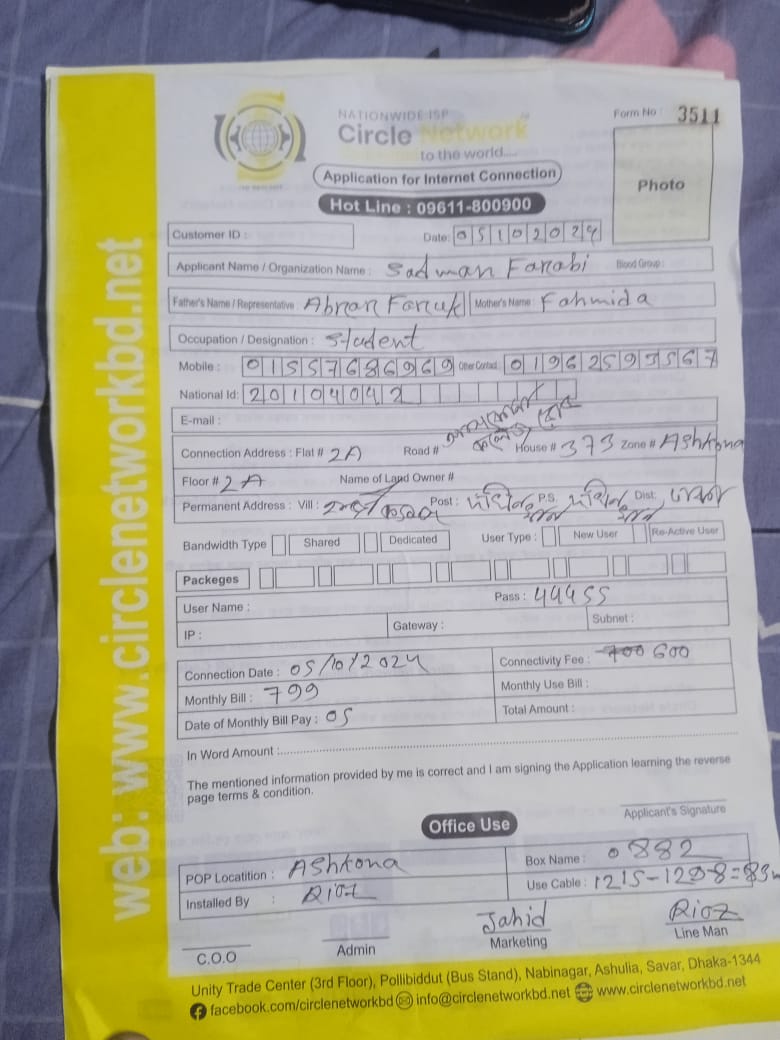 NATIONWIDE ISP
Circle Network
to the world....
Form No : 3511
Application for Internet Connection
Photo
Hot Line : 09611-800900
Customer ID :
Date: 05102024
Applicant Name / Organization Name : Sadman Farabi Blood Group :
Father's Name / Representative : Abrar Faruk Mother's Name : Fahmida
Occupation / Designation : Student
Mobile : 01557686969 Other Contact : 01962593567
National Id: 20104042
E-mail :
Connection Address : Flat # 2A Road # House # 373 Zone # Ashkona
Floor # 2A Name of Land Owner #
Permanent Address : Vill : Post : P.S. Dist:
Bandwidth Type Shared Dedicated User Type : New User Re-Active User
Packeges
User Name : Pass : 44455
IP : Gateway : Subnet :
Connection Date : 05/10/2024 Connectivity Fee : 700 600
Monthly Bill : 799 Monthly Use Bill :
Date of Monthly Bill Pay : 05 Total Amount :
In Word Amount :
The mentioned information provided by me is correct and I am signing the Application learning the reverse
page terms & condition.
Applicant's Signature
Office Use
POP Locatition : Ashkona Box Name : 0882
Installed By : Rioz Use Cable : 1215-
Jahid Rioz
C.O.O Admin Marketing Line Man
Unity Trade Center (3rd Floor), Pollibiddut (Bus Stand), Nabinagar, Ashulia, Savar, Dhaka-1344
facebook.com/circlenetworkbd info@circlenetworkbd.net www.circlenetworkbd.net
web: www.circlenetworkbd.net